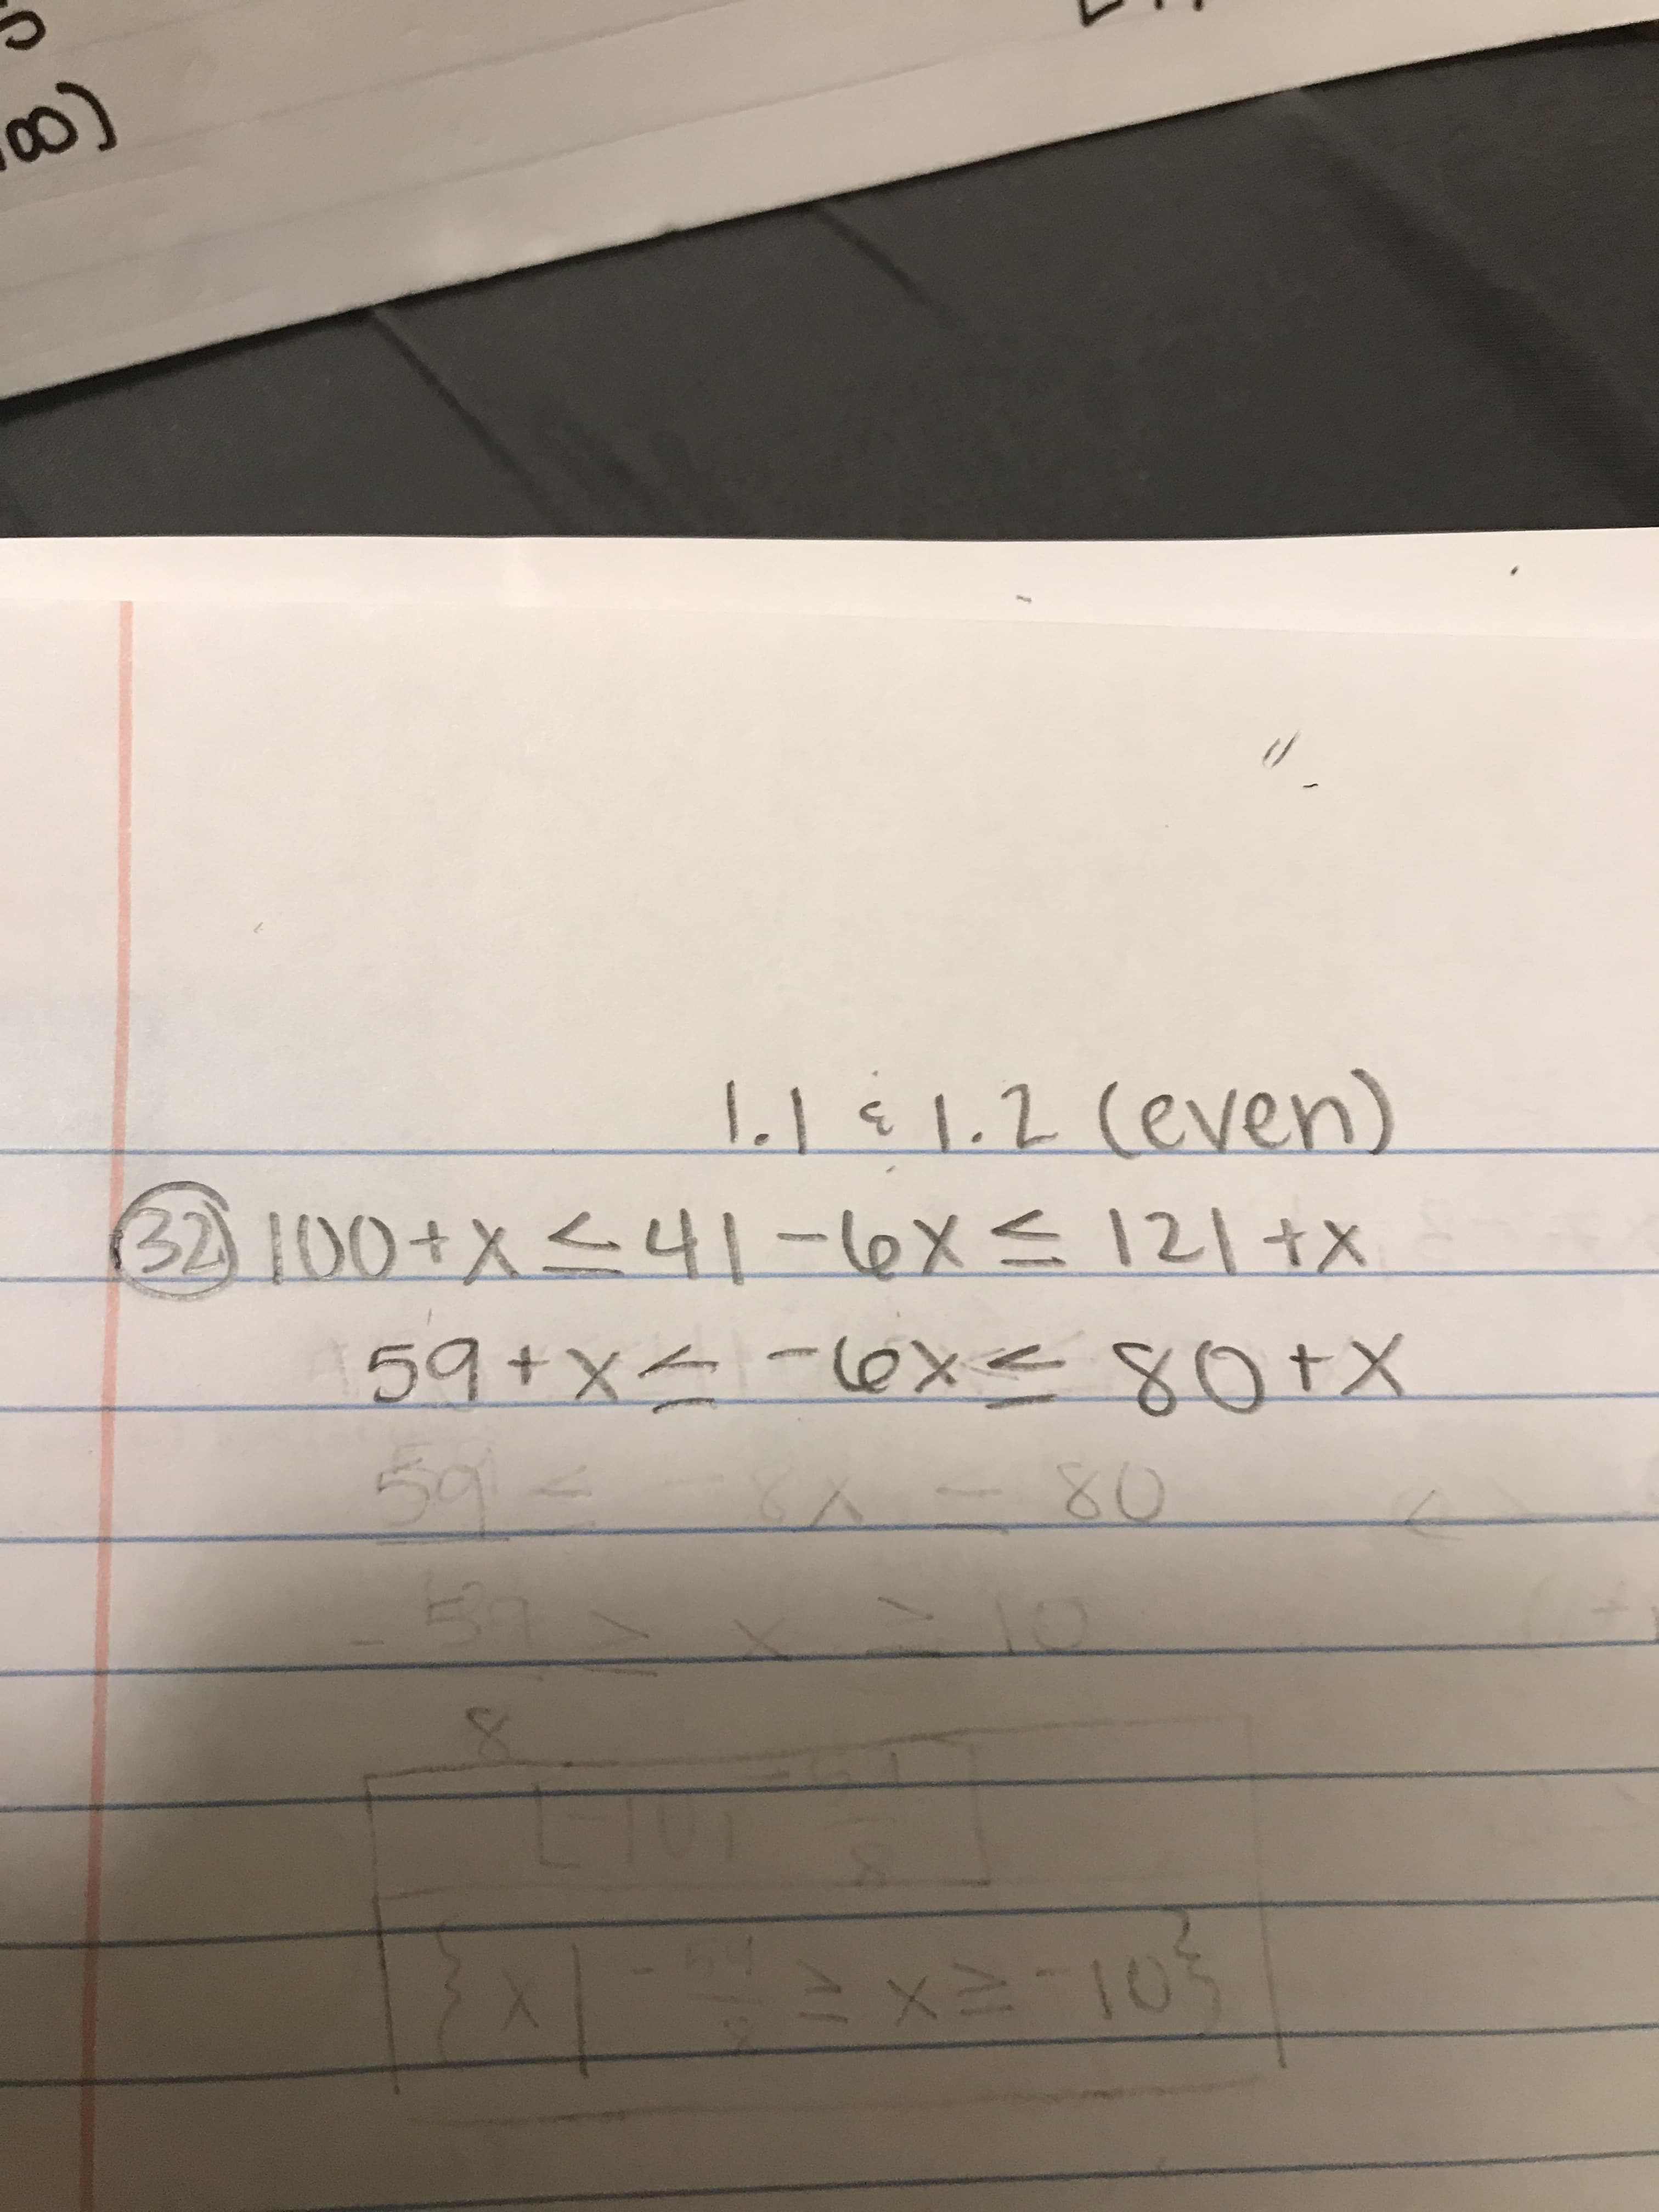 ∞)
1.1 & 1.2 (even)
32 100+x ≤ 41-6x ≤ 121+x
59+x ≤ -6x ≤ 80+x
59 ≤ -8x ≤ 80
- 59 ≥ x ≥ 10
8
[-10,
8 ]
{x | - 59/8 ≥ x ≥ -10}